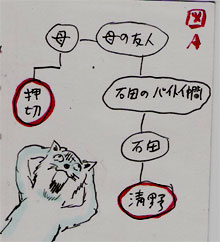 図
A
母
母の友人
押切
石田のバイト仲間
石田
清野